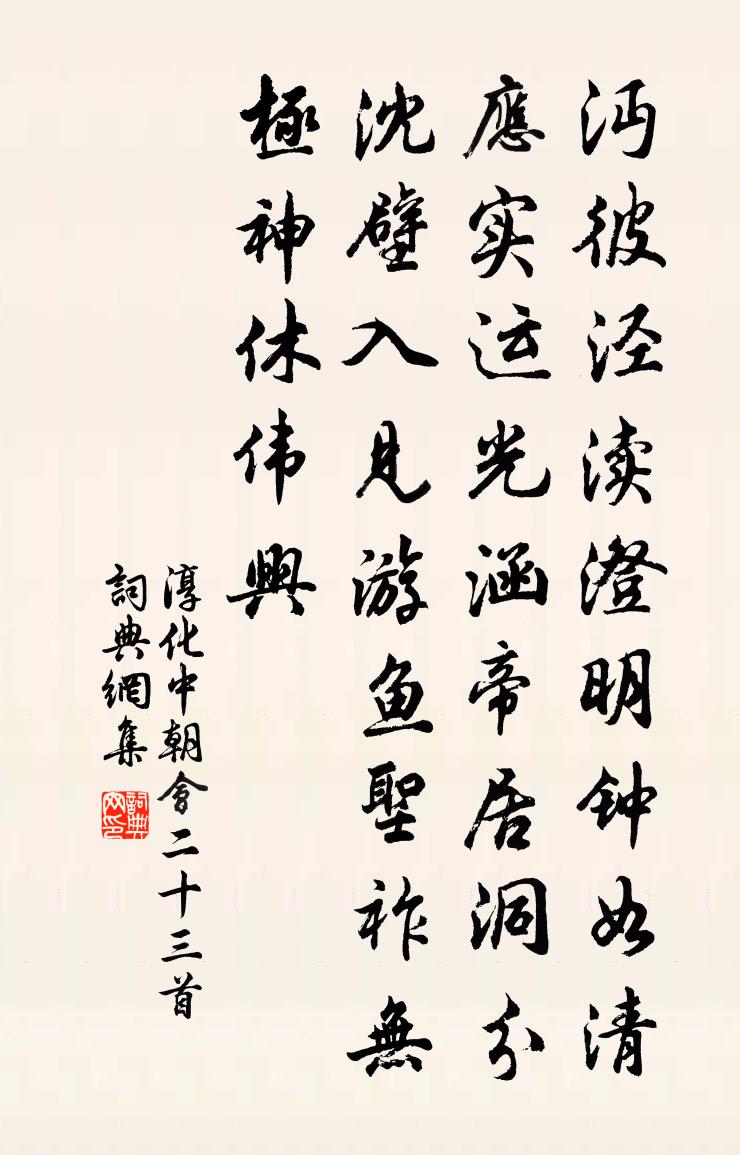 沔彼泾渎澄明钟如清
應实运光涵帝居洞分
沈壁入見游鱼聖祚無
極神休伟興
淳化中朝會二十三首
詞典網集
詞典网印